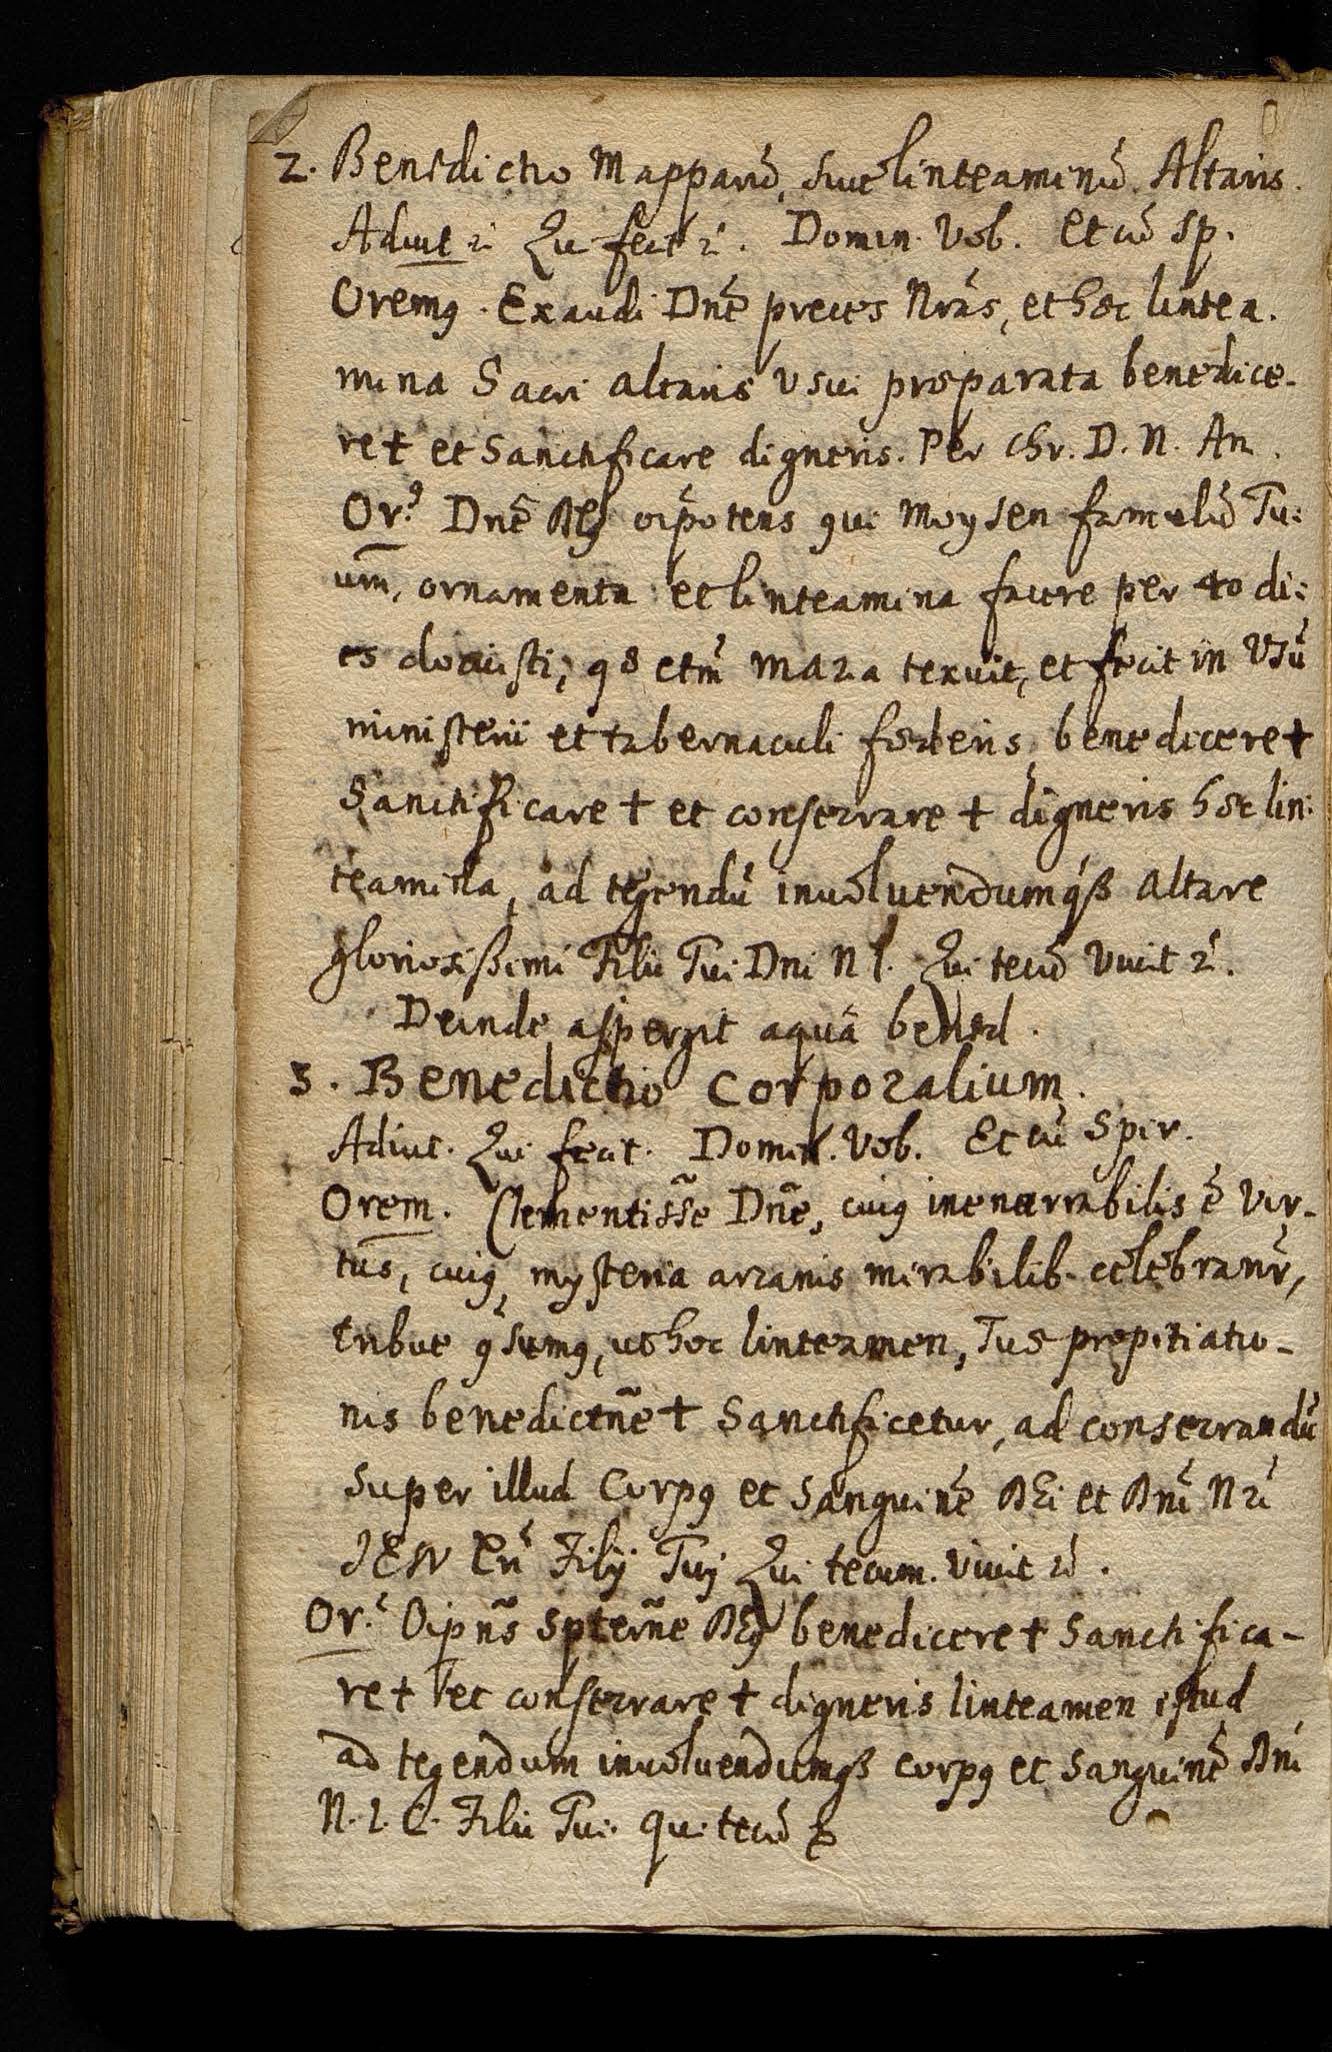 2. Benedictio Mapparũ, siue linteaminũ Altaris.
Adiut Qui fecit. Domin. Vob. Et cũ sp.
Oremꝯ. Exaudi Dnẽ preces Nrãs, et hæc lintea-
mina Sacri altaris Vsui præparata benedice-
re † et Sanctificare digneris. Per Chr. D. N. Am.
Or.o Dnẽ DEꝯ oĩpotens qui Moysen famulũ Tu:
um, ornamenta et linteamina facere per 40 di:
es docuisti, q̃ etm̃ Maria texuit, et fecit in Vsũ
ministerii et tabernaculi fœderis, benedicere †
Sanctificare † et consecrare † digneris hæc lin:
teamina, ad tegendũ inuoluendumqꝫ altare
gloriosißimi Filii Tui Dni N I. Qui tecũ Viuit &.
Deinde aspergit aquã bened.
3. Benedictio Corporalium.
Adiut. Qui fecit. Domin. Vob. Et cũ Spir.
Orem. Clementissẽ Dnẽ, cuiꝯ inenarrabilis ẽ Vir-
tus, cuiꝯ mysteria arcanis mirabilib. celebranr̃,
tribue q̃sumꝯ, ut hoc linteamen, Tuæ propitiatio-
nis benedictñe † Sanctificetur, ad consecrandũ
super illud Corpꝯ et Sanguinẽ DEi et Dnĩ Nrĩ
IESV Chĩ Filij Tuj Qui tecum. Viuit &.
Or. Oipñs Sptern̄e DEꝯ benedicere † Sanctifica-
re † et consecrare † digneris linteamen istud
ad tegendum inuoluendumqꝫ corpꝯ et Sanguinẽ Dnĩ
N. I. C. Filii Tui. qui tecũ &